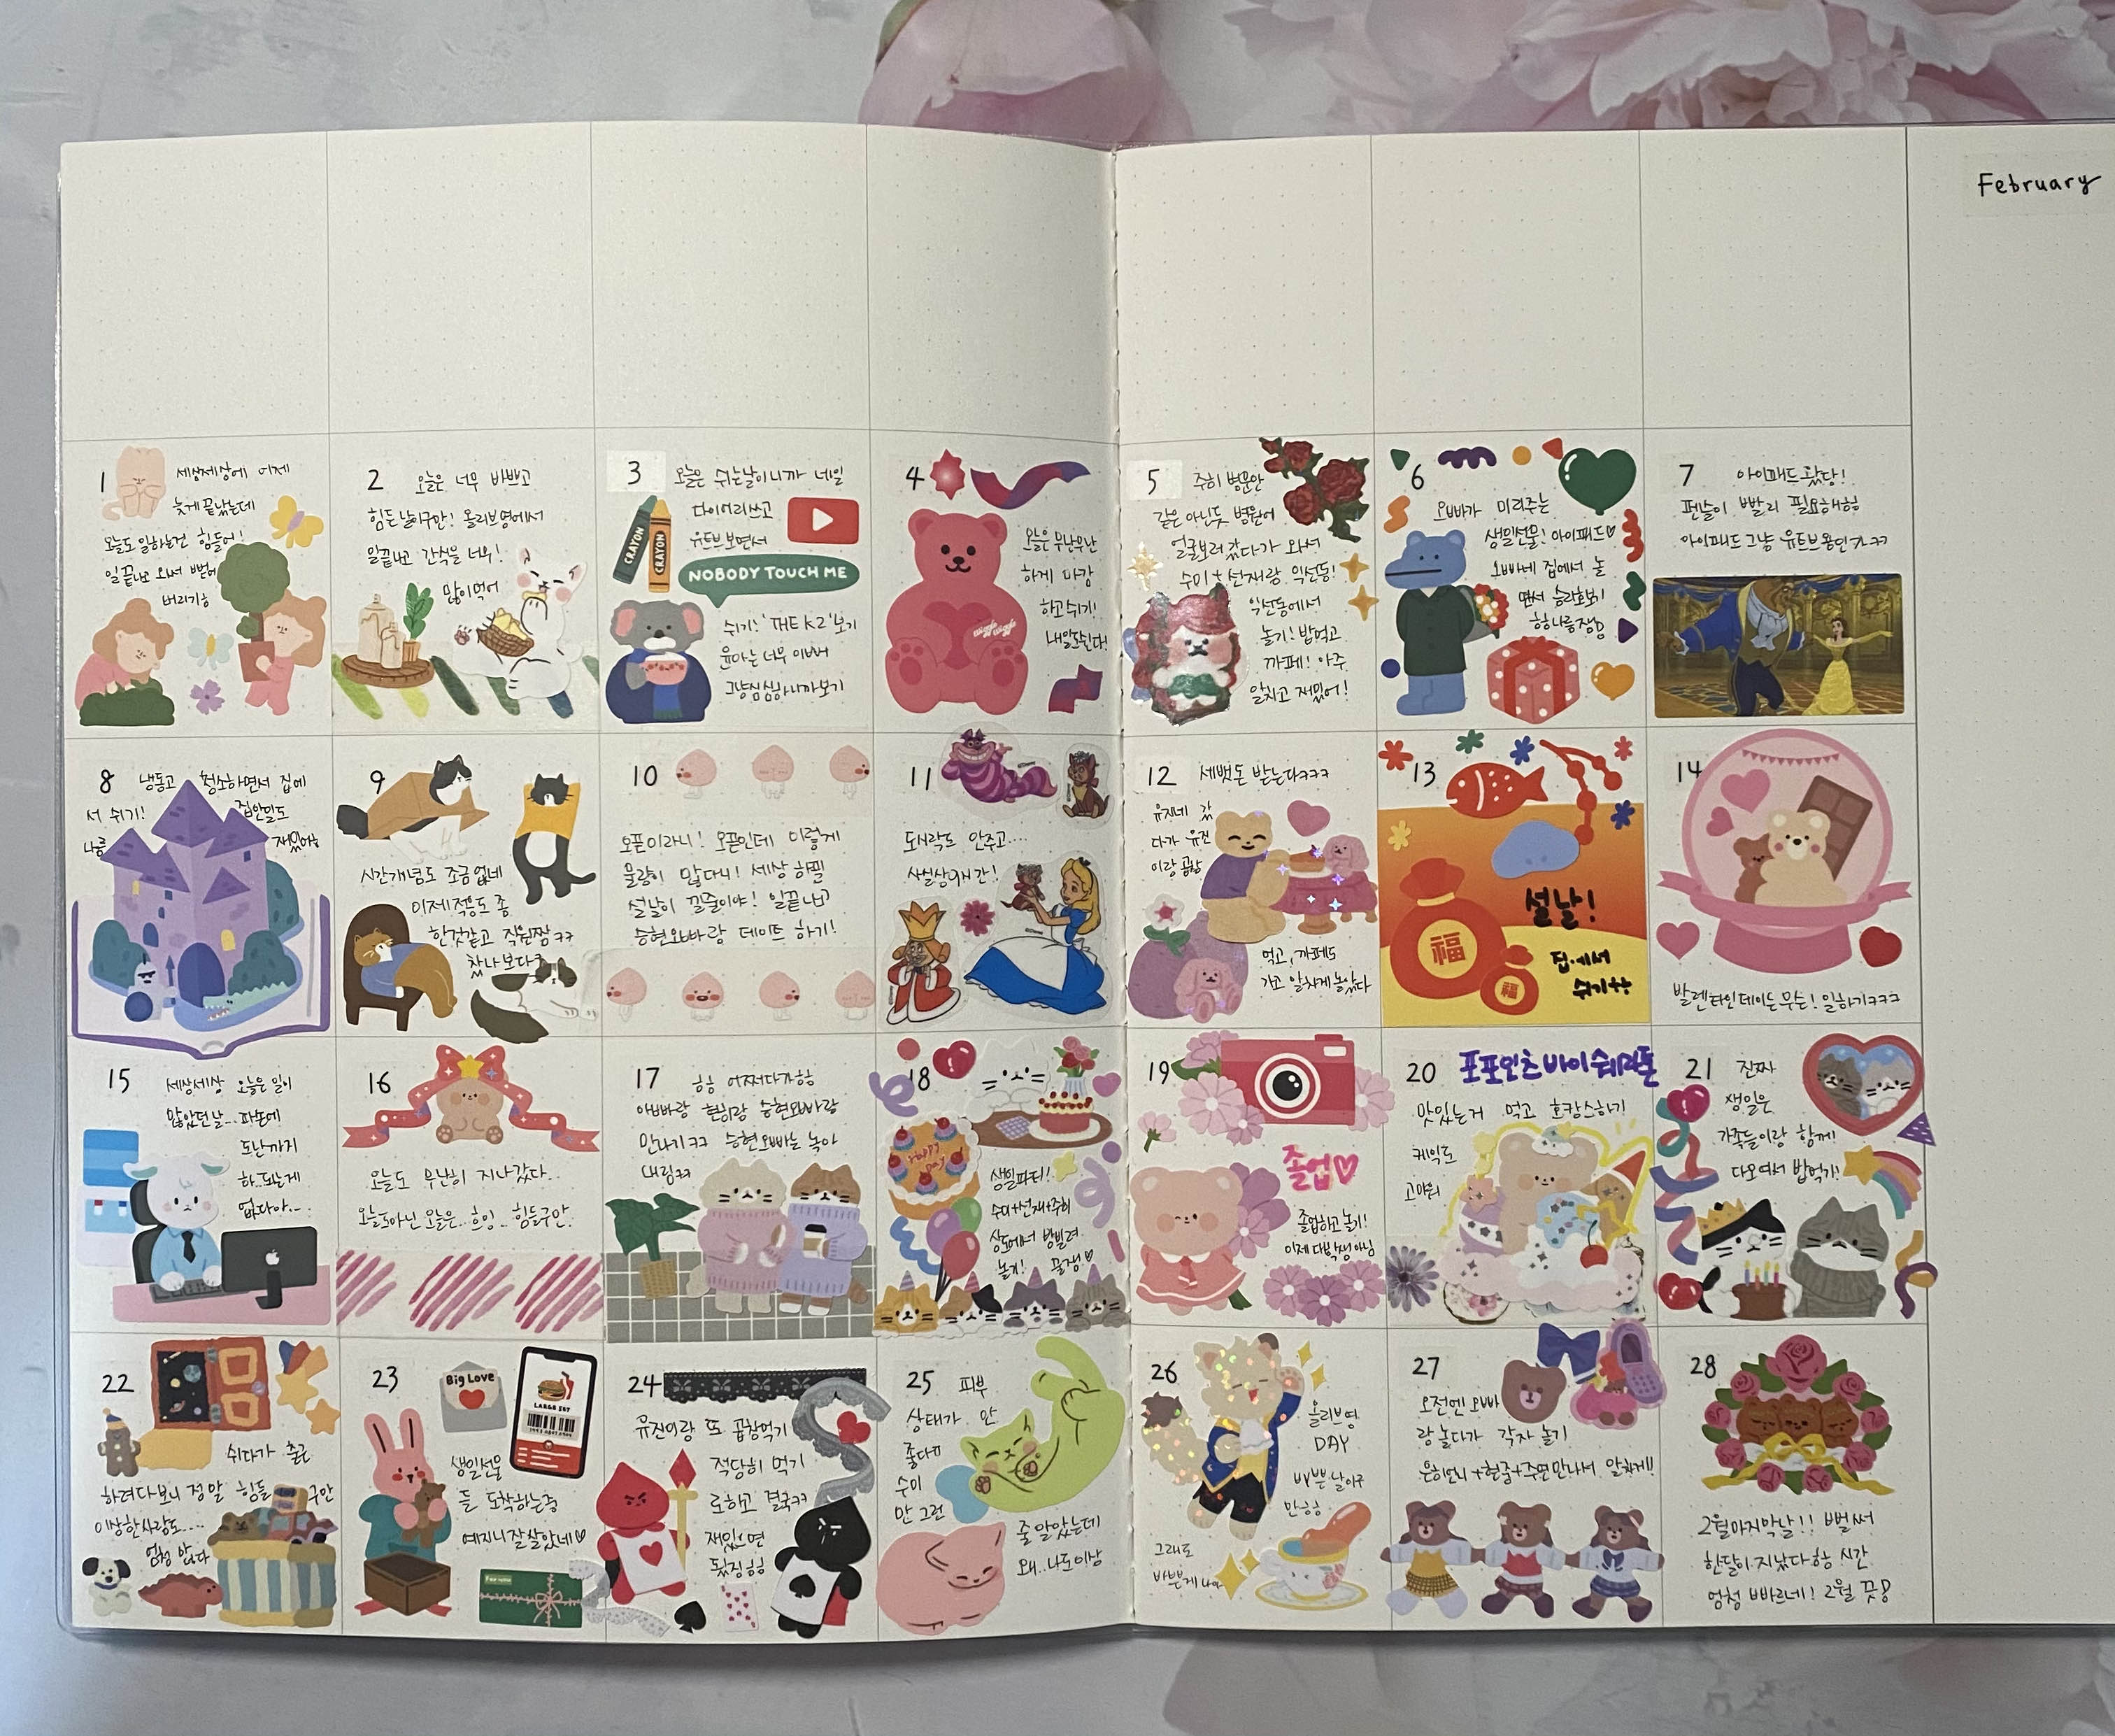 February
1
세상세상에 어제
늦게 끝났는데
오늘도 일하는건 힘들어!
일끝나고 와서 뻗어
버리기는
2
오늘은 너무 바쁘고
힘든날이구만! 올리브영에서
일끝나고 간식을 너무!
많이먹어
3
오늘은 쉬는날이니까 내일
다이어리쓰고
유튜브보면서
CRAYON
CRAYON
NOBODY TOUCH ME
쉬기! 'THE K2'보기
윤아는 너무 이뻐
그냥심심하니까보기
4
오늘은 무난무난
하게 마감
하고쉬기!
내일은쉰다!
5
주히 병문안
같은 아닌듯 병원에
얼굴보러 갔다가 와서
수미+선재랑 익선동!
익선동에서
놀기! 밥먹고
까페! 아주
알차고 재밌어!
6
오빠가 미리주는
생일선물! 아이패드♡
오빠네 집에서 놀
면서 슬라호보기
7
아이패드왔당!
펜슬이 빨리 필요해
아이패드 그냥 유튜브용인가ㅋㅋ
8
냉동고 청소하면서 집에
서 쉬기!
집안일도
나름 재밌어
9
시간개념도 조금 없네
이제 적응도 좀
한것같고 직원짬ㅋㅋ
찼나보다
10
오픈이라니! 오픈인데 이렇게
물량이 많다니! 세상 하필
설날이 낄줄이야! 일끝나고
승현오빠랑 데이트 하기!
11
도시락도 안주고....
12
세뱃돈 받는다ㅋㅋㅋ
유진네 갔
다가 유진
이랑 곱창
먹고, 까페도
가고 알차게 놀았다
13
설날!
福
福
집에서
쉬기
14
발렌타인데이는무슨! 일하기ㅋㅋㅋ
15
세상세상 오늘은 일이
많았던날...파손에
도난까지
하..되는게
없다아...
16
오늘도 무난히 지나갔다..
오늘도아닌 오늘은..흐잉.. 힘들구만.
17
흠흠 어쩌다가
아빠랑 현히랑 승현오빠랑
만나기ㅋㅋ 승현오빠는 녹아
내림ㅋㅋ
18
Happy
Day
생일파티!
수미+선재+주히
상도에서 방빌려
놀기! 꿀잼♡
19
졸업♡
졸업하고놀기!
이제 대학생아님
20
포포인츠 바이 쉐라톤
맛있는거 먹고 호캉스하기!
케익도
고마워
21
진짜
생일은
가족들이랑 함께
다모여서 밥먹기!
22
쉬다가 출근
하려다보니 정말 힘들구만
이상한사람도....
엄청 많다
23
Big Love
LARGE SET
생일선물
들 도착하는중
예지니잘살았네♡
24
유진이랑 또 곱창먹기
적당히 먹기
로하고 결국ㅋㅋ
재밌으면
됐징
25
피부
상태가 안
좋다ㅠ
수미
만 그런
줄 알았는데
왜..나도이냥
26
올리브영
DAY
바쁜날이구
만
그래도
바쁜게 나아
27
오전엔 오빠
랑 놀다가 각자 놀기
은히언니+현중+주연만나서 알차게!!
28
2월마지막날!! 벌써
한달이 지났다 시간
엄청 빠르네! 2월 끗!